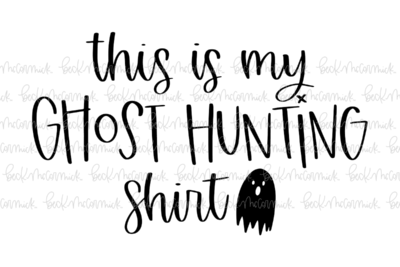 this is my
GHOST HUNTING
shirt